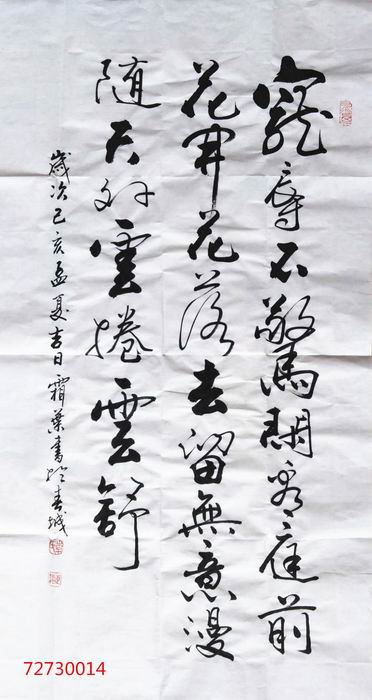 寵辱不驚閑看庭前
花開花落去留無意漫
随天外雲捲雲舒
歲次己亥孟夏吉日霜葉書於春城
72730014